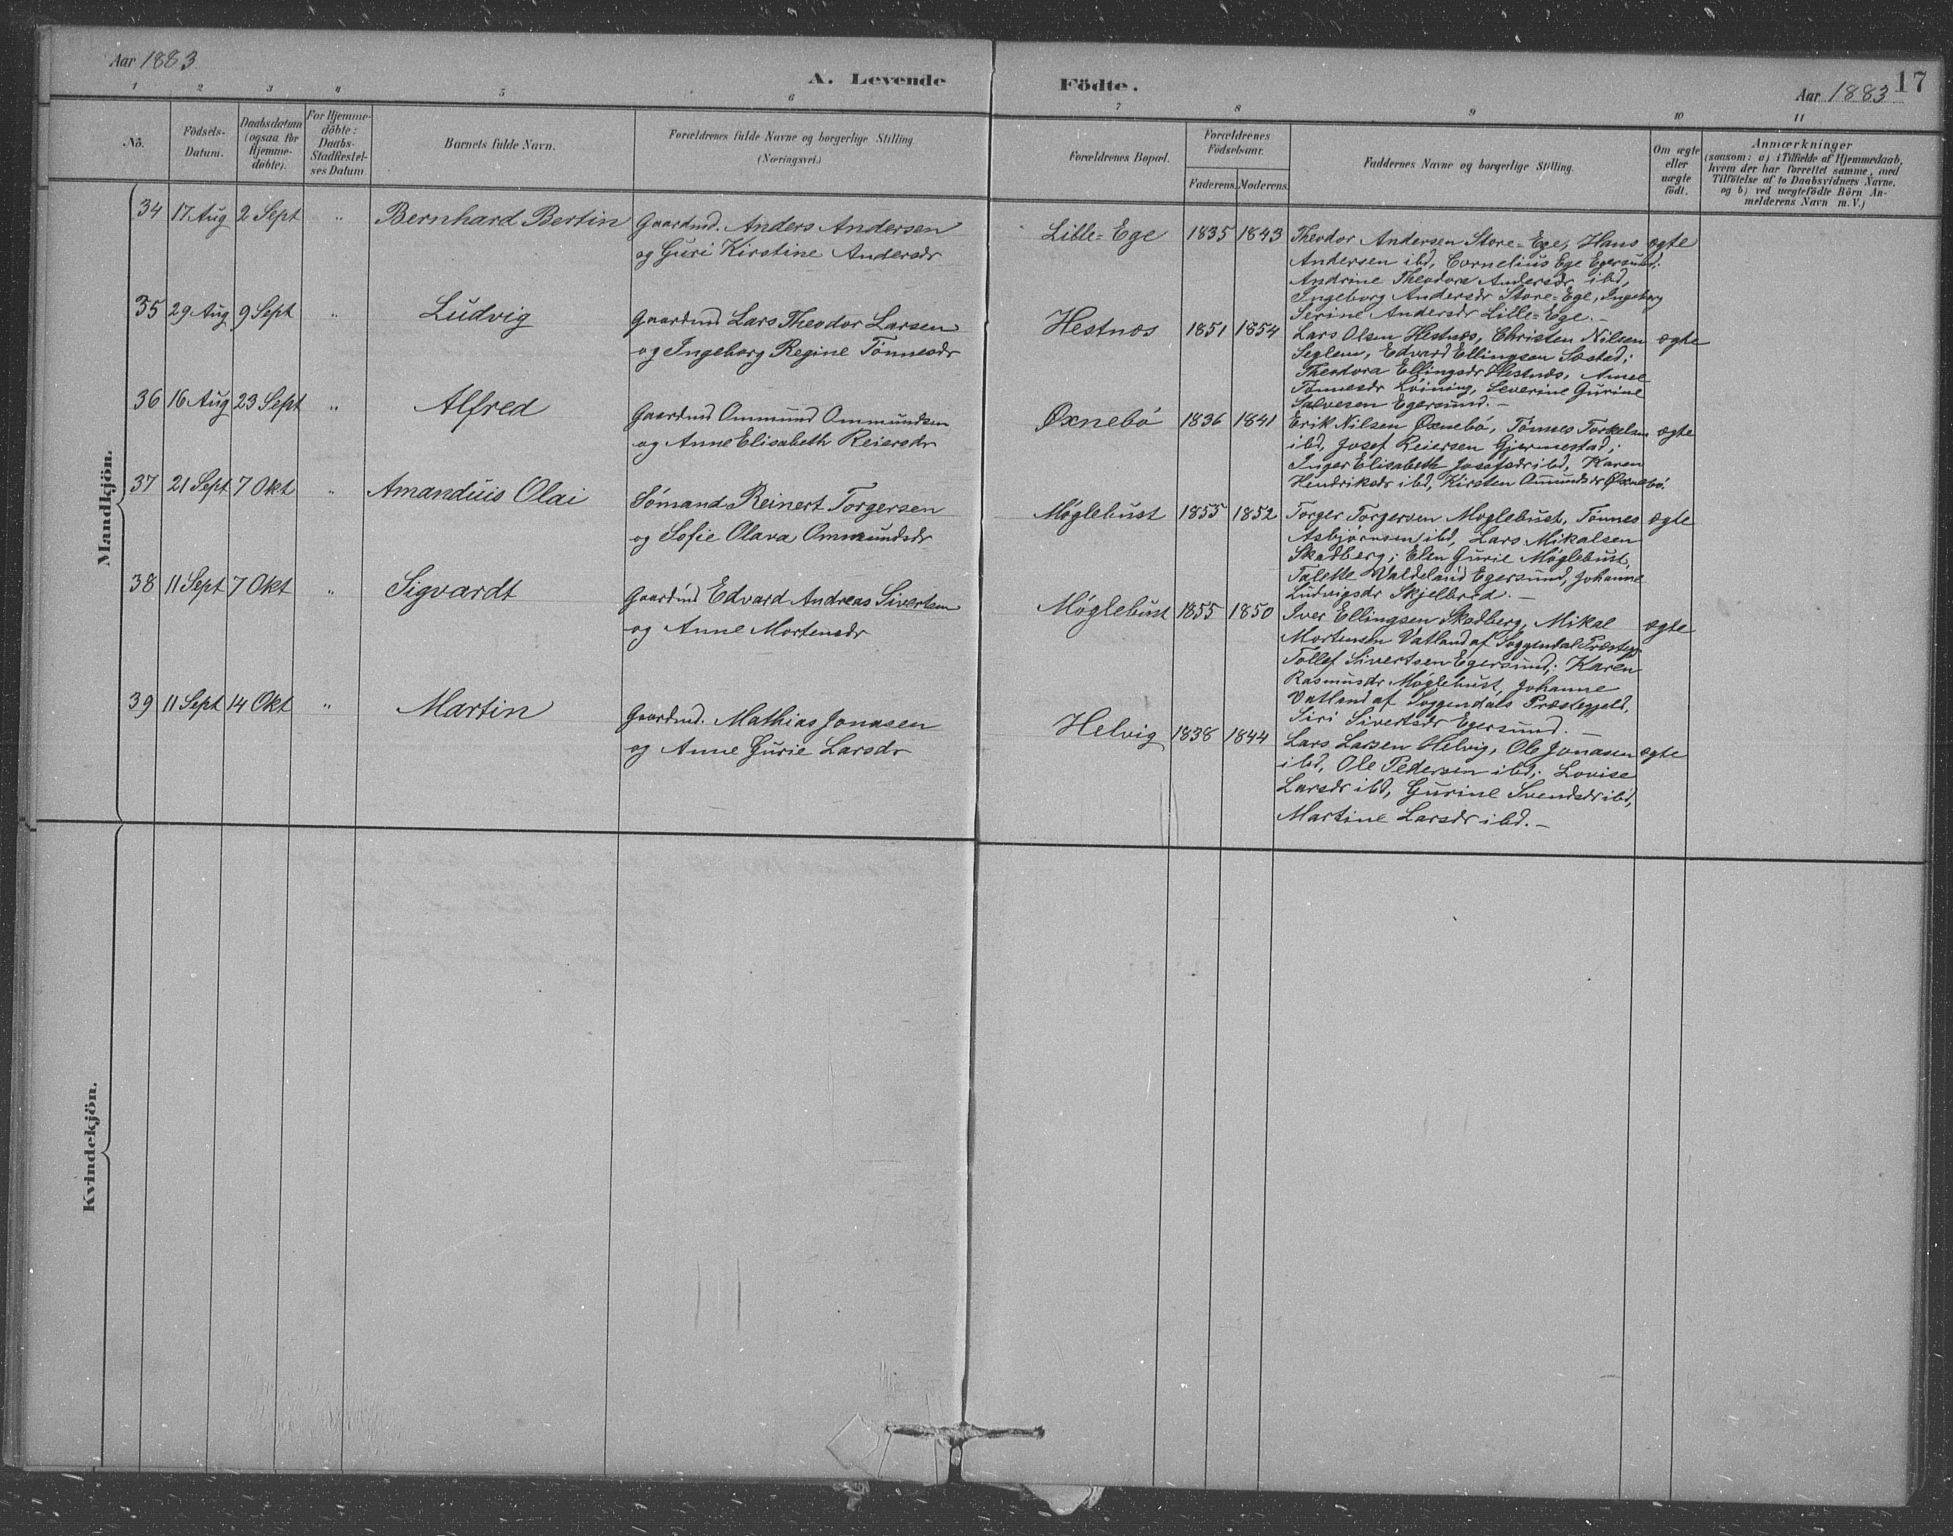 Aar 1883
A. Levende Födte.
Aar 1883
17
1 2 3 4 5 6 7 8 9 10 11
No.
Födsels-Datum.
Daabsdatum (ogsaa for Hjemme-döbte).
For Hjemme-döbte: Daabs-Stadfæstel-ses Datum.
Barnets fulde Navn.
Forældrenes fulde Navne og borgerlige Stilling (Næringsvei.)
Forældrenes Bopæl.
Forældrenes Födselsaar.
Faderens. Moderens.
Faddernes Navne og borgerlige Stilling.
Om ægte eller uægte födt.
Anmærkninger
(saasom: a) i Tilfælde af Hjemmedaab,
hvem der har forrettet samme, med
Tilföielse af to Daabsvidners Navne,
og b) ved uægtefödte Börn An-
melderens Navn m. V.)
Mandkjön.
34 17 Aug 2 Sept " Bernhard Bertin
Gaardmd. Anders Andersen
og Guri Kirstine Andersdr
Lille-Ege 1835 1843
Theodor Andersen Store-Ege, Hans
Andersen ibd, Cornelius Ege Egersund;
Andrine Theodora Andersdr ibd,
Ingeborg Andersdr Store-Ege, Ingeborg
Serine Andersdr Lille-Ege.–
ægte
35 29 Aug 9 Sept " Ludvig
Gaardmd Lars Theodor Larsen
og Ingeborg Regine Tönnesdr
Hestnæs 1851 1854
Lars Olsen Hestnæs, Christen Nilsen
Seglem, Edvard Ellingsen Sæstad;
Theodora Ellingsdr Hestnæs, Anne
Tönnesdr Löining, Severine Gurine
Salvesen Egersund.–
ægte
36 16 Aug 23 Sept " Alfred
Gaardmd Ommund Ommundsen
og Anne Elisabeth Reiersdr
Øxnebö 1836 1841
Erik Nilsen Øxnebö, Tönnes Torkelsen
ibd, Josef Reiersen Gjermestad;
Inger Elisabeth Josefsdr ibd, Karen
Hendriksdr ibd, Kirsten Ommundsdr Øxnebö.
ægte
37 21 Sept 7 Okt " Amanduis Olai
Sømand Reinert Torgersen
og Sofie Olava Ommundsdr
Møglebust 1855 1852
Torger Torgersen Møglebust, Tönnes
Asbjørnsen ibd, Lars Mikalsen
Skadberg; Elen Gurie Møglebust,
Talette Waldeland Egersund, Johanne
Ludvigsdr Skjelbred.–
ægte
38 11 Sept 7 Okt " Sigvardt
Gaardmd Edvard Andreas Sivertsen
og Anne Mortensdr
Møglebust 1855 1850
Iver Ellingsen Skadberg, Mikal
Mortensen Vatland af Soggendal Præstegj
Tollef Sivertsen Egersund; Karen
Rasmusdr Møglebust, Johanne
Vatland af Soggendals Præstegjeld,
Siri Sivertsdr Egersund.–
ægte
39 11 Sept 14 Okt " Martin
Gaardmd. Mathias Jonasen
og Anne Gurie Larsdr
Helvig 1838 1844
Lars Larsen Helvig, Ole Jonasen
ibd, Ole Pedersen ibd; Lovise
Larsdr ibd, Gurine Svendsdr ibd,
Martine Larsdr ibd.–
ægte
Kvindekjön.